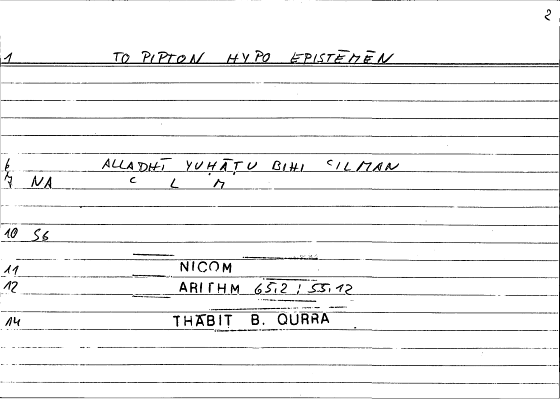 2
1 TO PIPTON HYPO EPISTĒMĒN
6 ALLADHĪ YUḤĀṬU BIHI ʿILMAN
7 NA ʿ L M
10 S6
11 NICOM
12 ARITHM 65,2 ; 55,12
14 THĀBIT B. QURRA